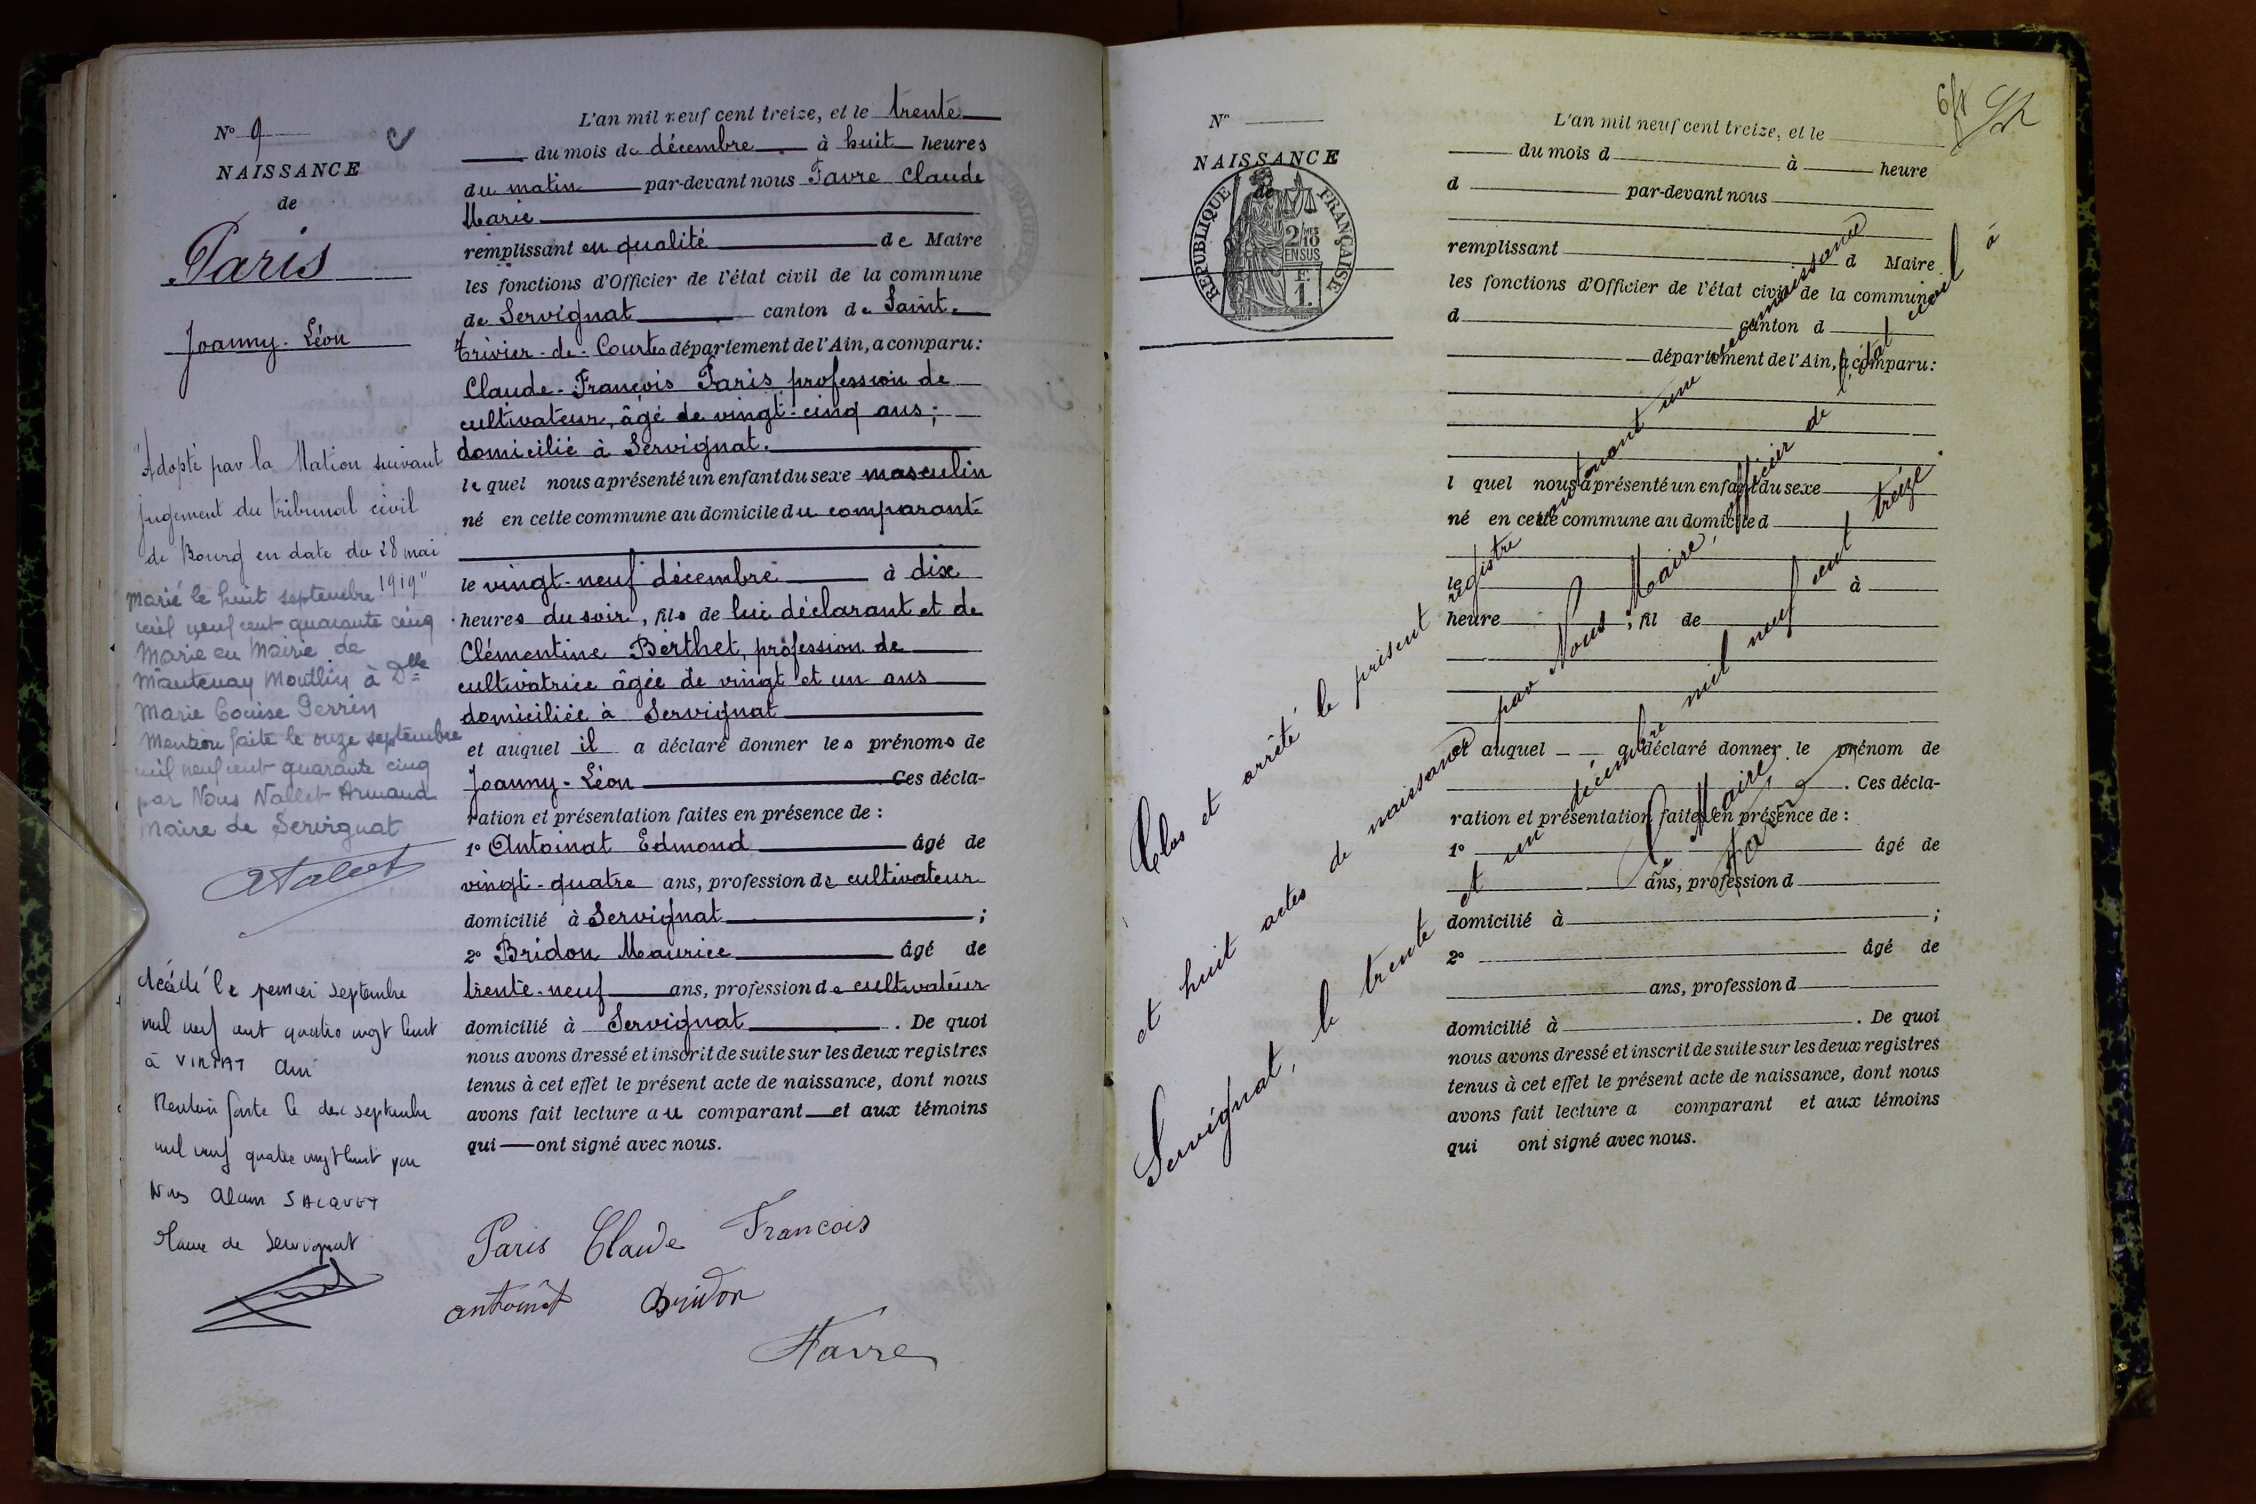 N° 9
NAISSANCE
de
Paris
Joanny-Léon
"Adopté par la Nation suivant
jugement du tribunal civil
de Bourg en date du 28 mai
1919"
Marié le huit septembre
mil neuf cent quarante cinq
Marie en Mairie de
Mantenay Montlin à Dlle
Marie Louise Perrin
Mention faite le onze septembre
mil neuf cent quarante cinq
par Nous Nallet Armand
Maire de Servignat
décédé le premier septembre
mil neuf cent quatre vingt huit
à VIRIAT Ain
Mention faite le dix septembre
mil neuf quatre vingt huit par
Nous Alain SACQUET
Maire de Servignat
L'an mil neuf cent treize, et le trente
du mois de décembre à huit heures
du matin par-devant nous Favre Claude
Marie
remplissant en qualité de Maire
les fonctions d'Officier de l'état civil de la commune
de Servignat canton de Saint-
Trivier-de-Courtes département de l'Ain, a comparu:
Claude-François Paris profession de
cultivateur, âgé de vingt-cinq ans;
domicilié à Servignat.
le quel nous a présenté un enfant du sexe masculin
né en cette commune au domicile du comparant
le vingt-neuf décembre à dix
heures du soir, fils de lui déclarant et de
Clémentine Berthet, profession de
cultivatrice âgée de vingt et un ans
domiciliée à Servignat
et auquel il a déclaré donner les prénoms de
Joanny-Léon Ces décla-
ration et présentation faites en présence de :
1° Antoinat Edmond âgé de
vingt-quatre ans, profession de cultivateur
domicilié à Servignat ;
2° Bridon Maurice âgé de
trente-neuf ans, profession de cultivateur
domicilié à Servignat . De quoi
nous avons dressé et inscrit de suite sur les deux registres
tenus à cet effet le présent acte de naissance, dont nous
avons fait lecture au comparant et aux témoins
qui ont signé avec nous.
Paris Claude Francois
antoinat Bridon
Favre
N°
NAISSANCE
de
REPUBLIQUE FRANÇAISE
2/10 MES
EN SUS
F.
1.
L'an mil neuf cent treize, et le
du mois d à heure
d par-devant nous
remplissant d Maire
les fonctions d'Officier de l'état civil de la commune
d canton d
département de l'Ain, a comparu:
l quel nous a présenté un enfant du sexe
né en cette commune au domicile d
le à
heure , fil de
et auquel a déclaré donner le prénom de
. Ces décla-
ration et présentation faites en présence de :
1° âgé de
ans, profession d
domicilié à ;
2° âgé de
ans, profession d
domicilié à . De quoi
nous avons dressé et inscrit de suite sur les deux registres
tenus à cet effet le présent acte de naissance, dont nous
avons fait lecture a comparant et aux témoins
qui ont signé avec nous.
Clos et arrêté le présent registre contenant une reconnaissance
et huit actes de naissance par Nous Maire, officier de l'état civil à
Servignat, le trente et un décembre mil neuf cent treize.
Le Maire
Favre